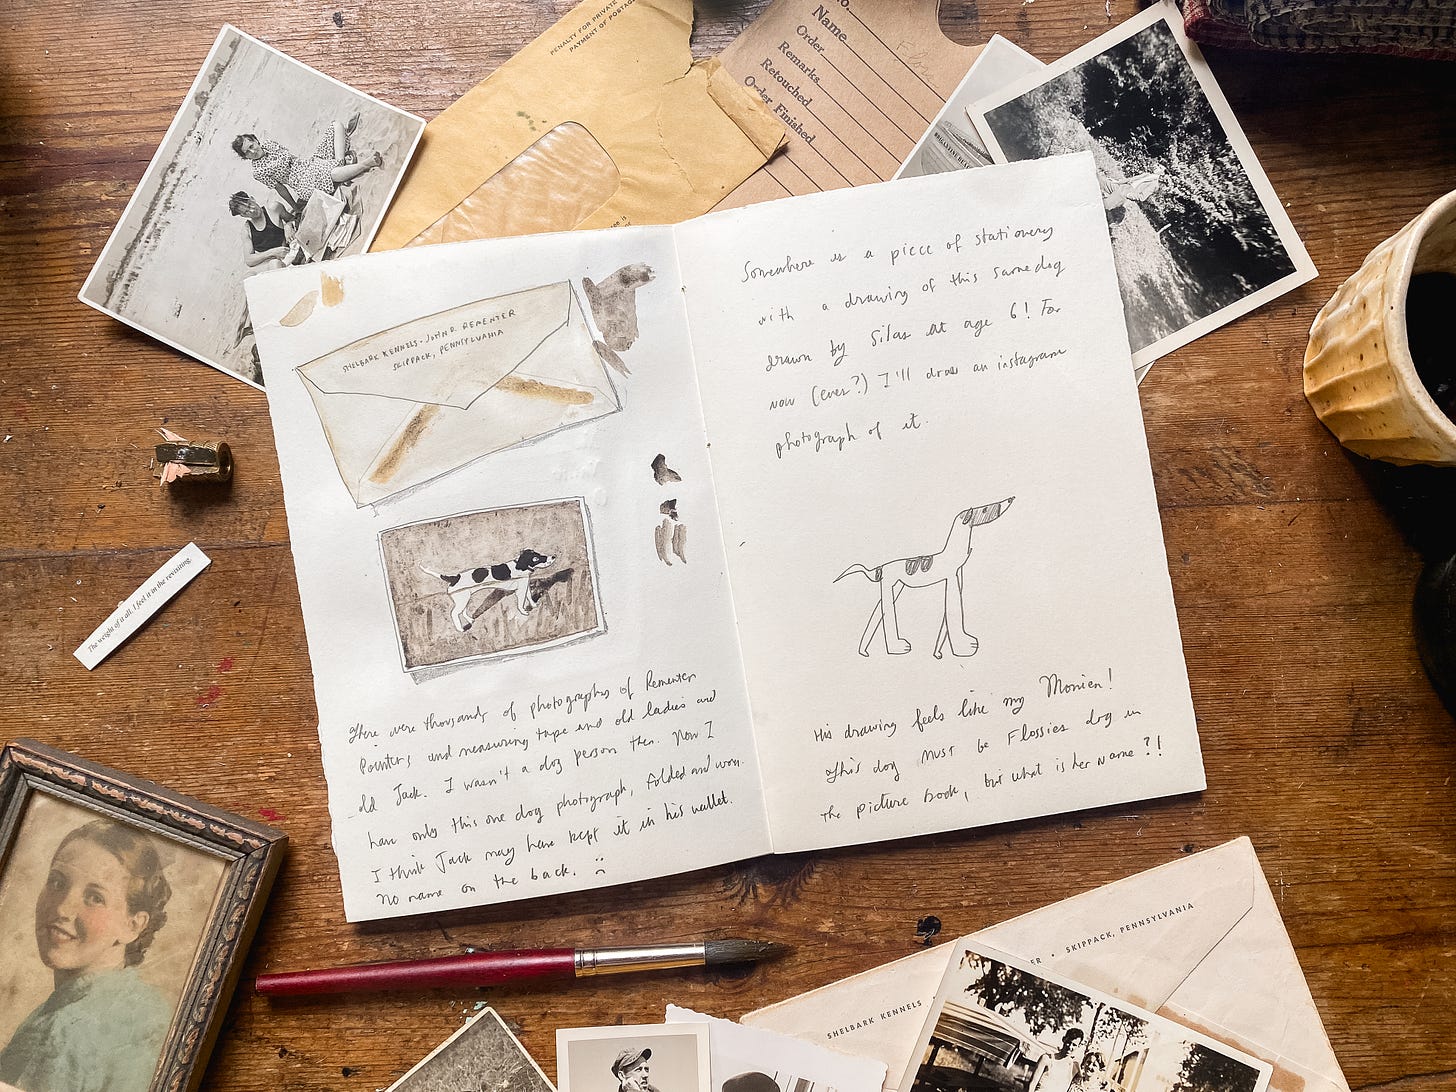 PENALTY FOR PRIVATE
PAYMENT OF POSTAGE
No.
Name
Order
Remarks
Retouched
Order Finished
SHELBARK KENNELS - JOHN R. REMENTER
SKIPPACK, PENNSYLVANIA
There were thousands of photographs of Rementer
Pointers and measuring tape and old ladies and
old Jack. I wasn't a dog person then. Now I
have only this one dog photograph, folded and worn.
I think Jack may have kept it in his wallet.
No name on the back. :(
Somewhere is a piece of stationery
with a drawing of this same dog
drawn by Silas at age 6! For
now (ever?) I'll draw an instagram
photograph of it.
His drawing feels like my Monien!
This dog must be Flossies dog in
the picture book, but what is her name?!
The weight of it all. I feel it in the revisiting.
SHELBARK KENNELS •
ER • SKIPPACK, PENNSYLVANIA